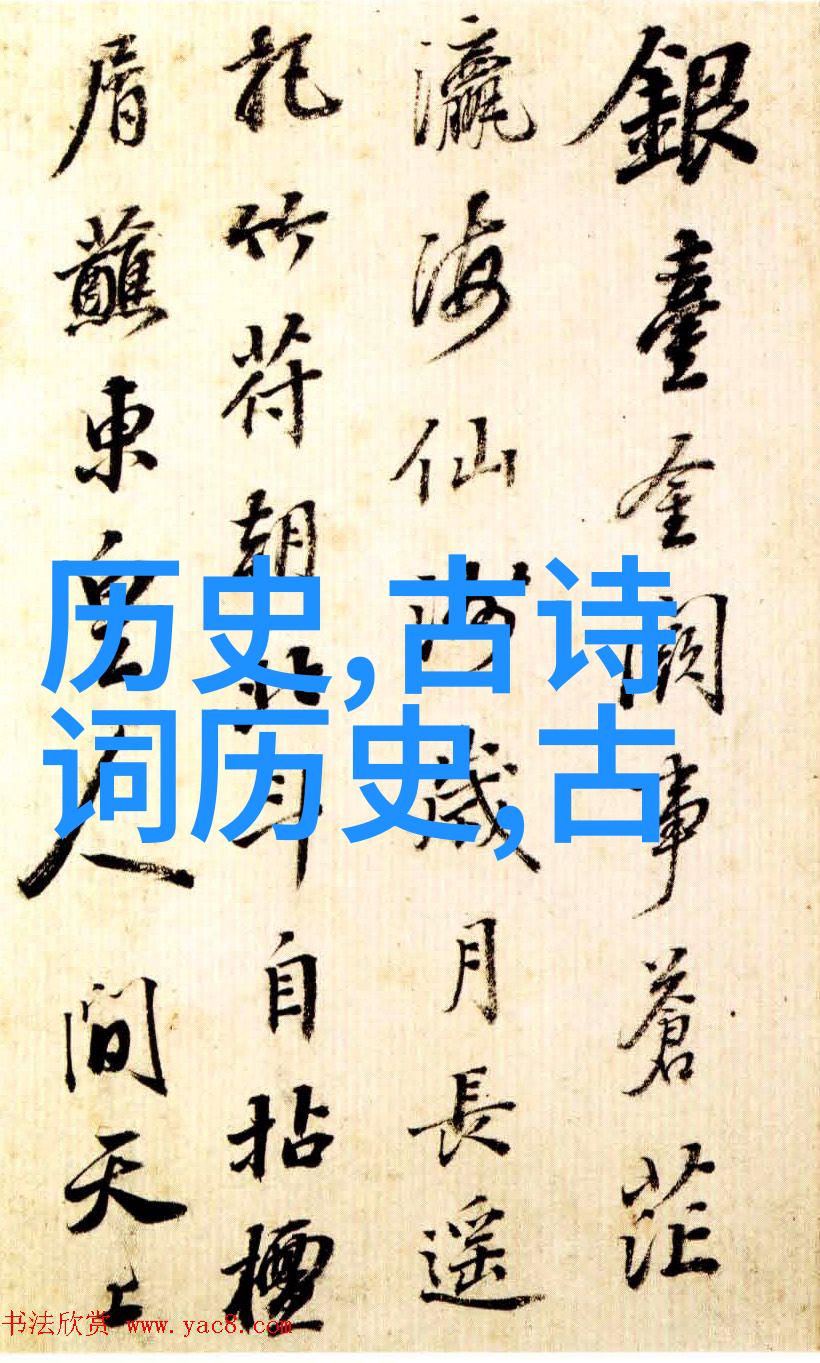 銀臺金闕事蒼茫
瀛海仙洲歲月長遥
竹符朝北斗自拈檀
屑蘸東皇人間天上
历史,古诗
词历史,古
书法欣赏 www.yac8.com